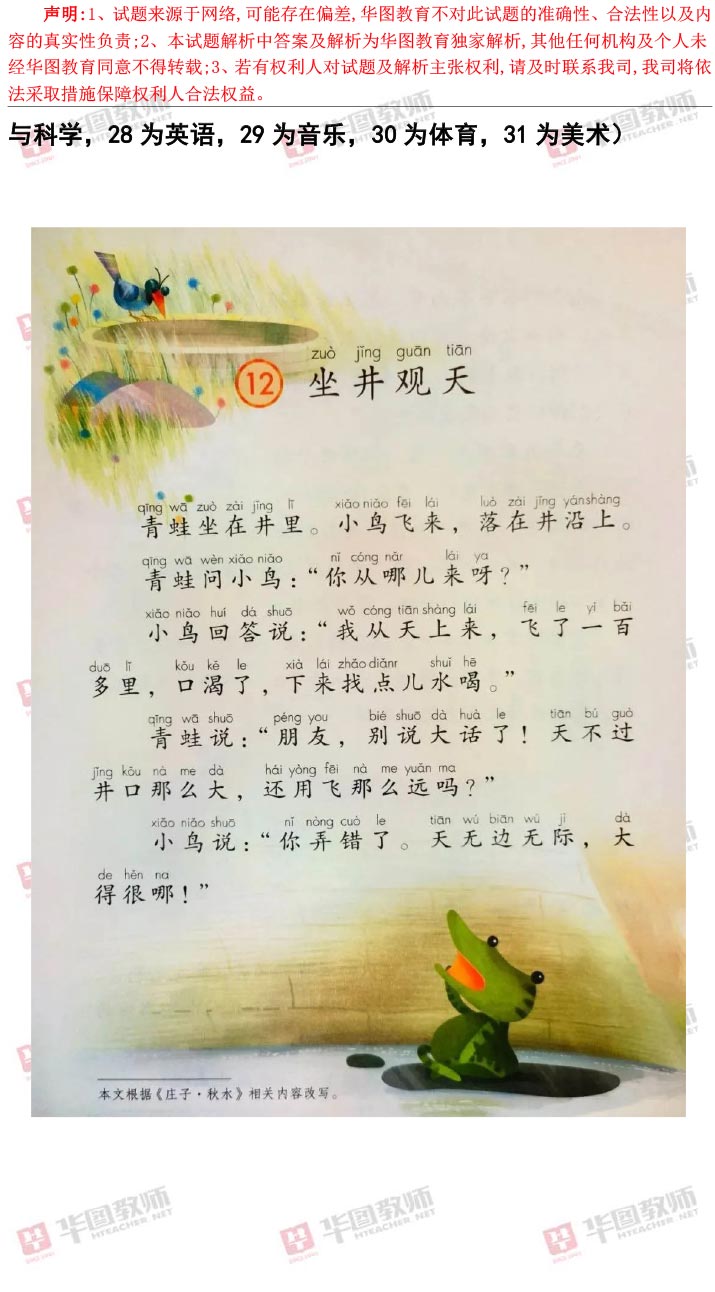 声明:1、试题来源于网络,可能存在偏差,华图教育不对此试题的准确性、合法性以及内
容的真实性负责;2、本试题解析中答案及解析为华图教育独家解析,其他任何机构及个人未
经华图教育同意不得转载;3、若有权利人对试题及解析主张权利,请及时联系我司,我司将依
法采取措施保障权利人合法权益。
与科学，28 为英语，29 为音乐，30 为体育，31 为美术）
zuò jǐng guān tiān
12 坐井观天
qīng wā zuò zài jǐng lǐ xiǎo niǎo fēi lái luò zài jǐng yán shàng
青蛙坐在井里。小鸟飞来，落在井沿上。
qīng wā wèn xiǎo niǎo nǐ cóng nǎr lái ya
青蛙问小鸟：“你从哪儿来呀？”
xiǎo niǎo huí dá shuō wǒ cóng tiān shàng lái fēi le yì bǎi
小鸟回答说：“我从天上来，飞了一百
duō lǐ kǒu kě le xià lái zhǎo diǎnr shuǐ hē
多里，口渴了，下来找点儿水喝。”
qīng wā shuō péng you bié shuō dà huà le tiān bú guò
青蛙说：“朋友，别说大话了！天不过
jǐng kǒu nà me dà hái yòng fēi nà me yuǎn ma
井口那么大，还用飞那么远吗？”
xiǎo niǎo shuō nǐ nòng cuò le tiān wú biān wú jì dà
小鸟说：“你弄错了。天无边无际，大
de hěn na
得很哪！”
本文根据《庄子·秋水》相关内容改写。
华图教师 HTEACHER.NET
华图教师 HTEACHER.NET
华图教师 HTEACHER.NET